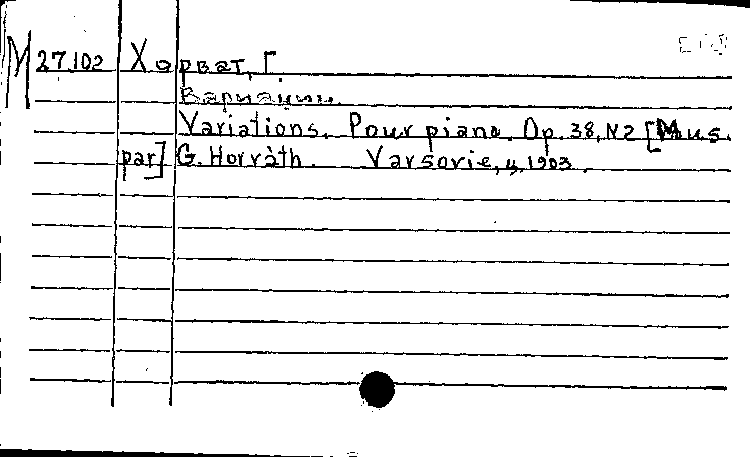 M 27.102 Хорват, Г.
Вариации.
Variations. Pour piano. Op. 38, N2 [Mus.
par] G. Horváth. Varsovie, 1903.